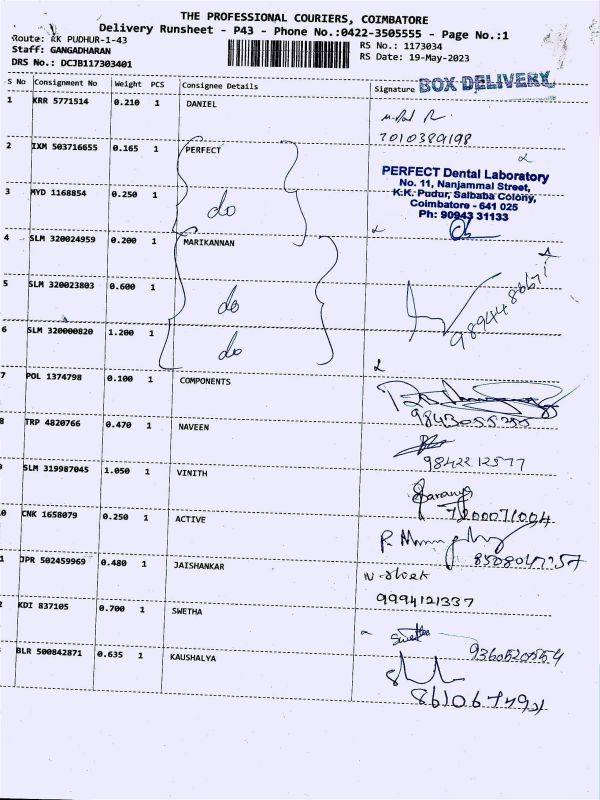 THE PROFESSIONAL COURIERS, COIMBATORE
Delivery Runsheet - P43 - Phone No.:0422-3505555 - Page No.:1
Route: KK PUDHUR-1-43
RS No.: 1173034
Staff: GANGADHARAN
RS Date: 19-May-2023
DRS No.: DCJB117303401
BOX DELIVERY
S No Consignment No Weight PCS Consignee Details Signature
1 KRR 5771514 0.210 1 DANIEL
7010389198
2 IXM 503716655 0.165 1 PERFECT
PERFECT Dental Laboratory
No. 11, Nanjammal Street,
K.K. Pudur, Saibaba Colony,
Coimbatore - 641 025
Ph: 90943 31133
3 MYD 1168854 0.250 1 do
4 SLM 320024959 0.200 1 MARIKANNAN
5 SLM 320023803 0.600 1 do
6 SLM 320000820 1.200 1 do
7 POL 1374798 0.100 1 COMPONENTS
8 TRP 4820766 0.470 1 NAVEEN
9842212577
9 SLM 319987045 1.050 1 VINITH
Saranya
7200071004
0 CNK 1658079 0.250 1 ACTIVE
1 JPR 502459969 0.480 1 JAISHANKAR
9994121337
2 KDI 837105 0.700 1 SWETHA
Swetha
9360520554
BLR 500842871 0.635 1 KAUSHALYA